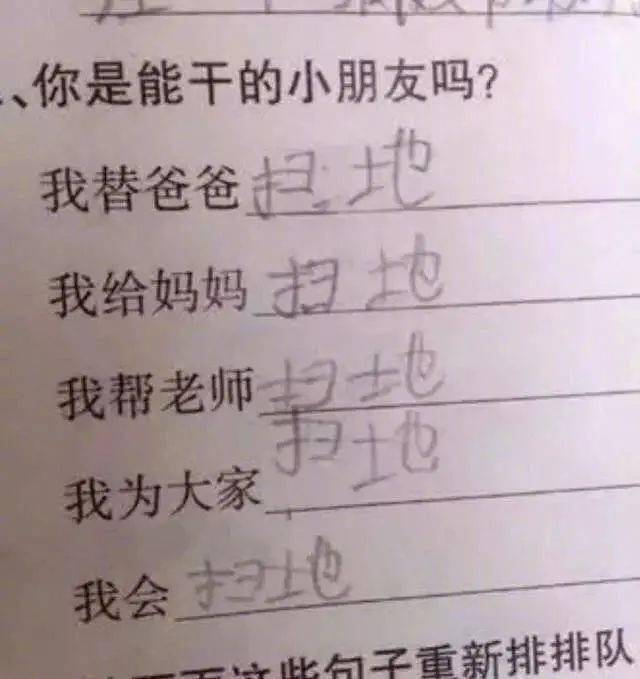 、你是能干的小朋友吗?
我替爸爸扫地
我给妈妈扫地
我帮老师扫地
我为大家扫地
我会扫地
这些句子重新排排队